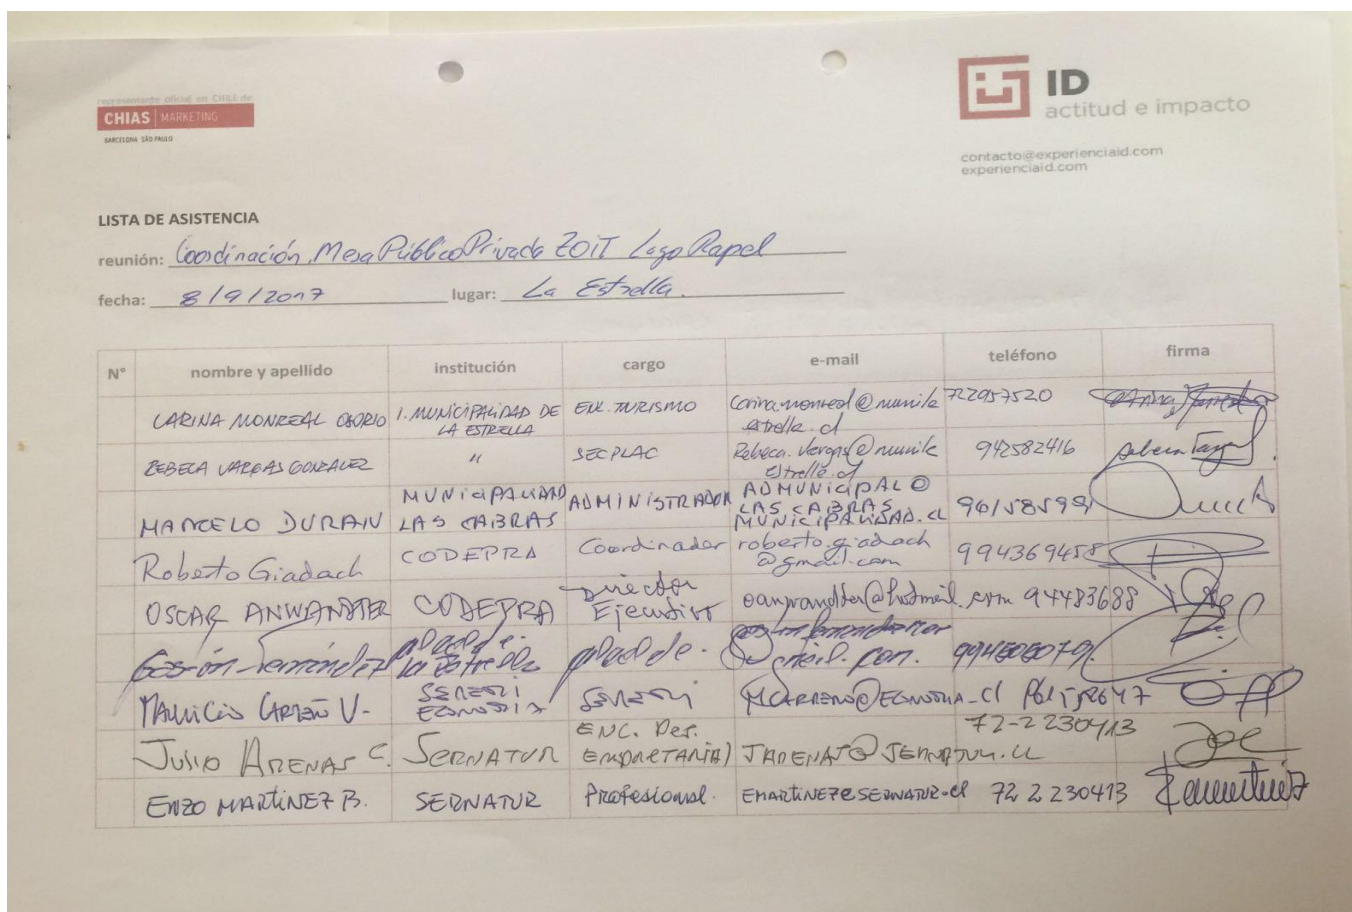 representante oficial en CHILE de:
CHIAS MARKETING
BARCELONA SÃO PAULO
ID
actitud e impacto
contacto@experienciaid.com
experienciaid.com
LISTA DE ASISTENCIA
reunión: Coordinación Mesa Público Privada ZOIT Lago Rapel
fecha: 8/9/2017 lugar: La Estrella
N° nombre y apellido institución cargo e-mail teléfono firma
CARINA MONREAL OSORIO I. MUNICIPALIDAD DE LA ESTRELLA ENC. TURISMO 722957520
REBECA VARGAS GONZALEZ " SECPLAC Rebeca.Vargas@munilaestrella.cl 942582416
MARCELO DURAN MUNICIPALIDAD LAS CABRAS ADMINISTRADOR ADMUNICIPAL@LASCABRASMUNICIPALIDAD.CL
Roberto Giadach CODEPRA Coordinador roberto.giadach@gmail.com 994369458
OSCAR ANWANDTER CODEPRA Director Ejecutivo 94483688
Gastón Fernández La Estrella
MAURICIO CARREÑO V. SEREMI ECONOMIA SEREMI MCARRENO@ECONOMIA.CL
JULIO ARENAS C. SERNATUR ENC. Des. EMPRESARIAL JARENAS@SERNATUR.CL 72-2230413
ENZO MARTINEZ B. SERNATUR Profesional. EMARTINEZ@SERNATUR.cl 72 2 230413